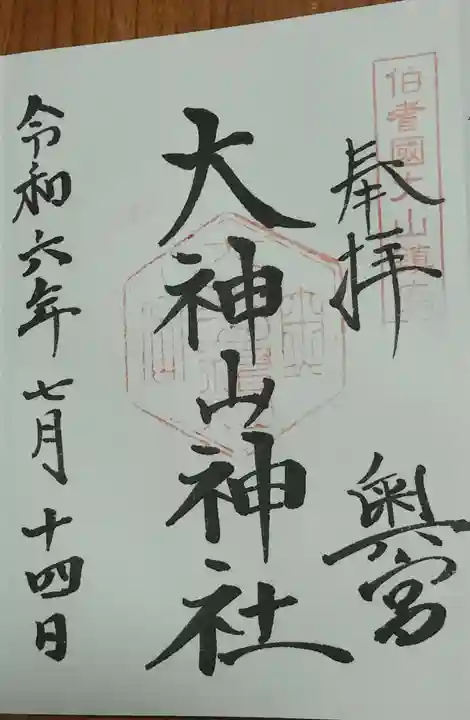 伯耆國大山鎮座
奉拝
奥宮
大神山神社
令和六年七月十四日